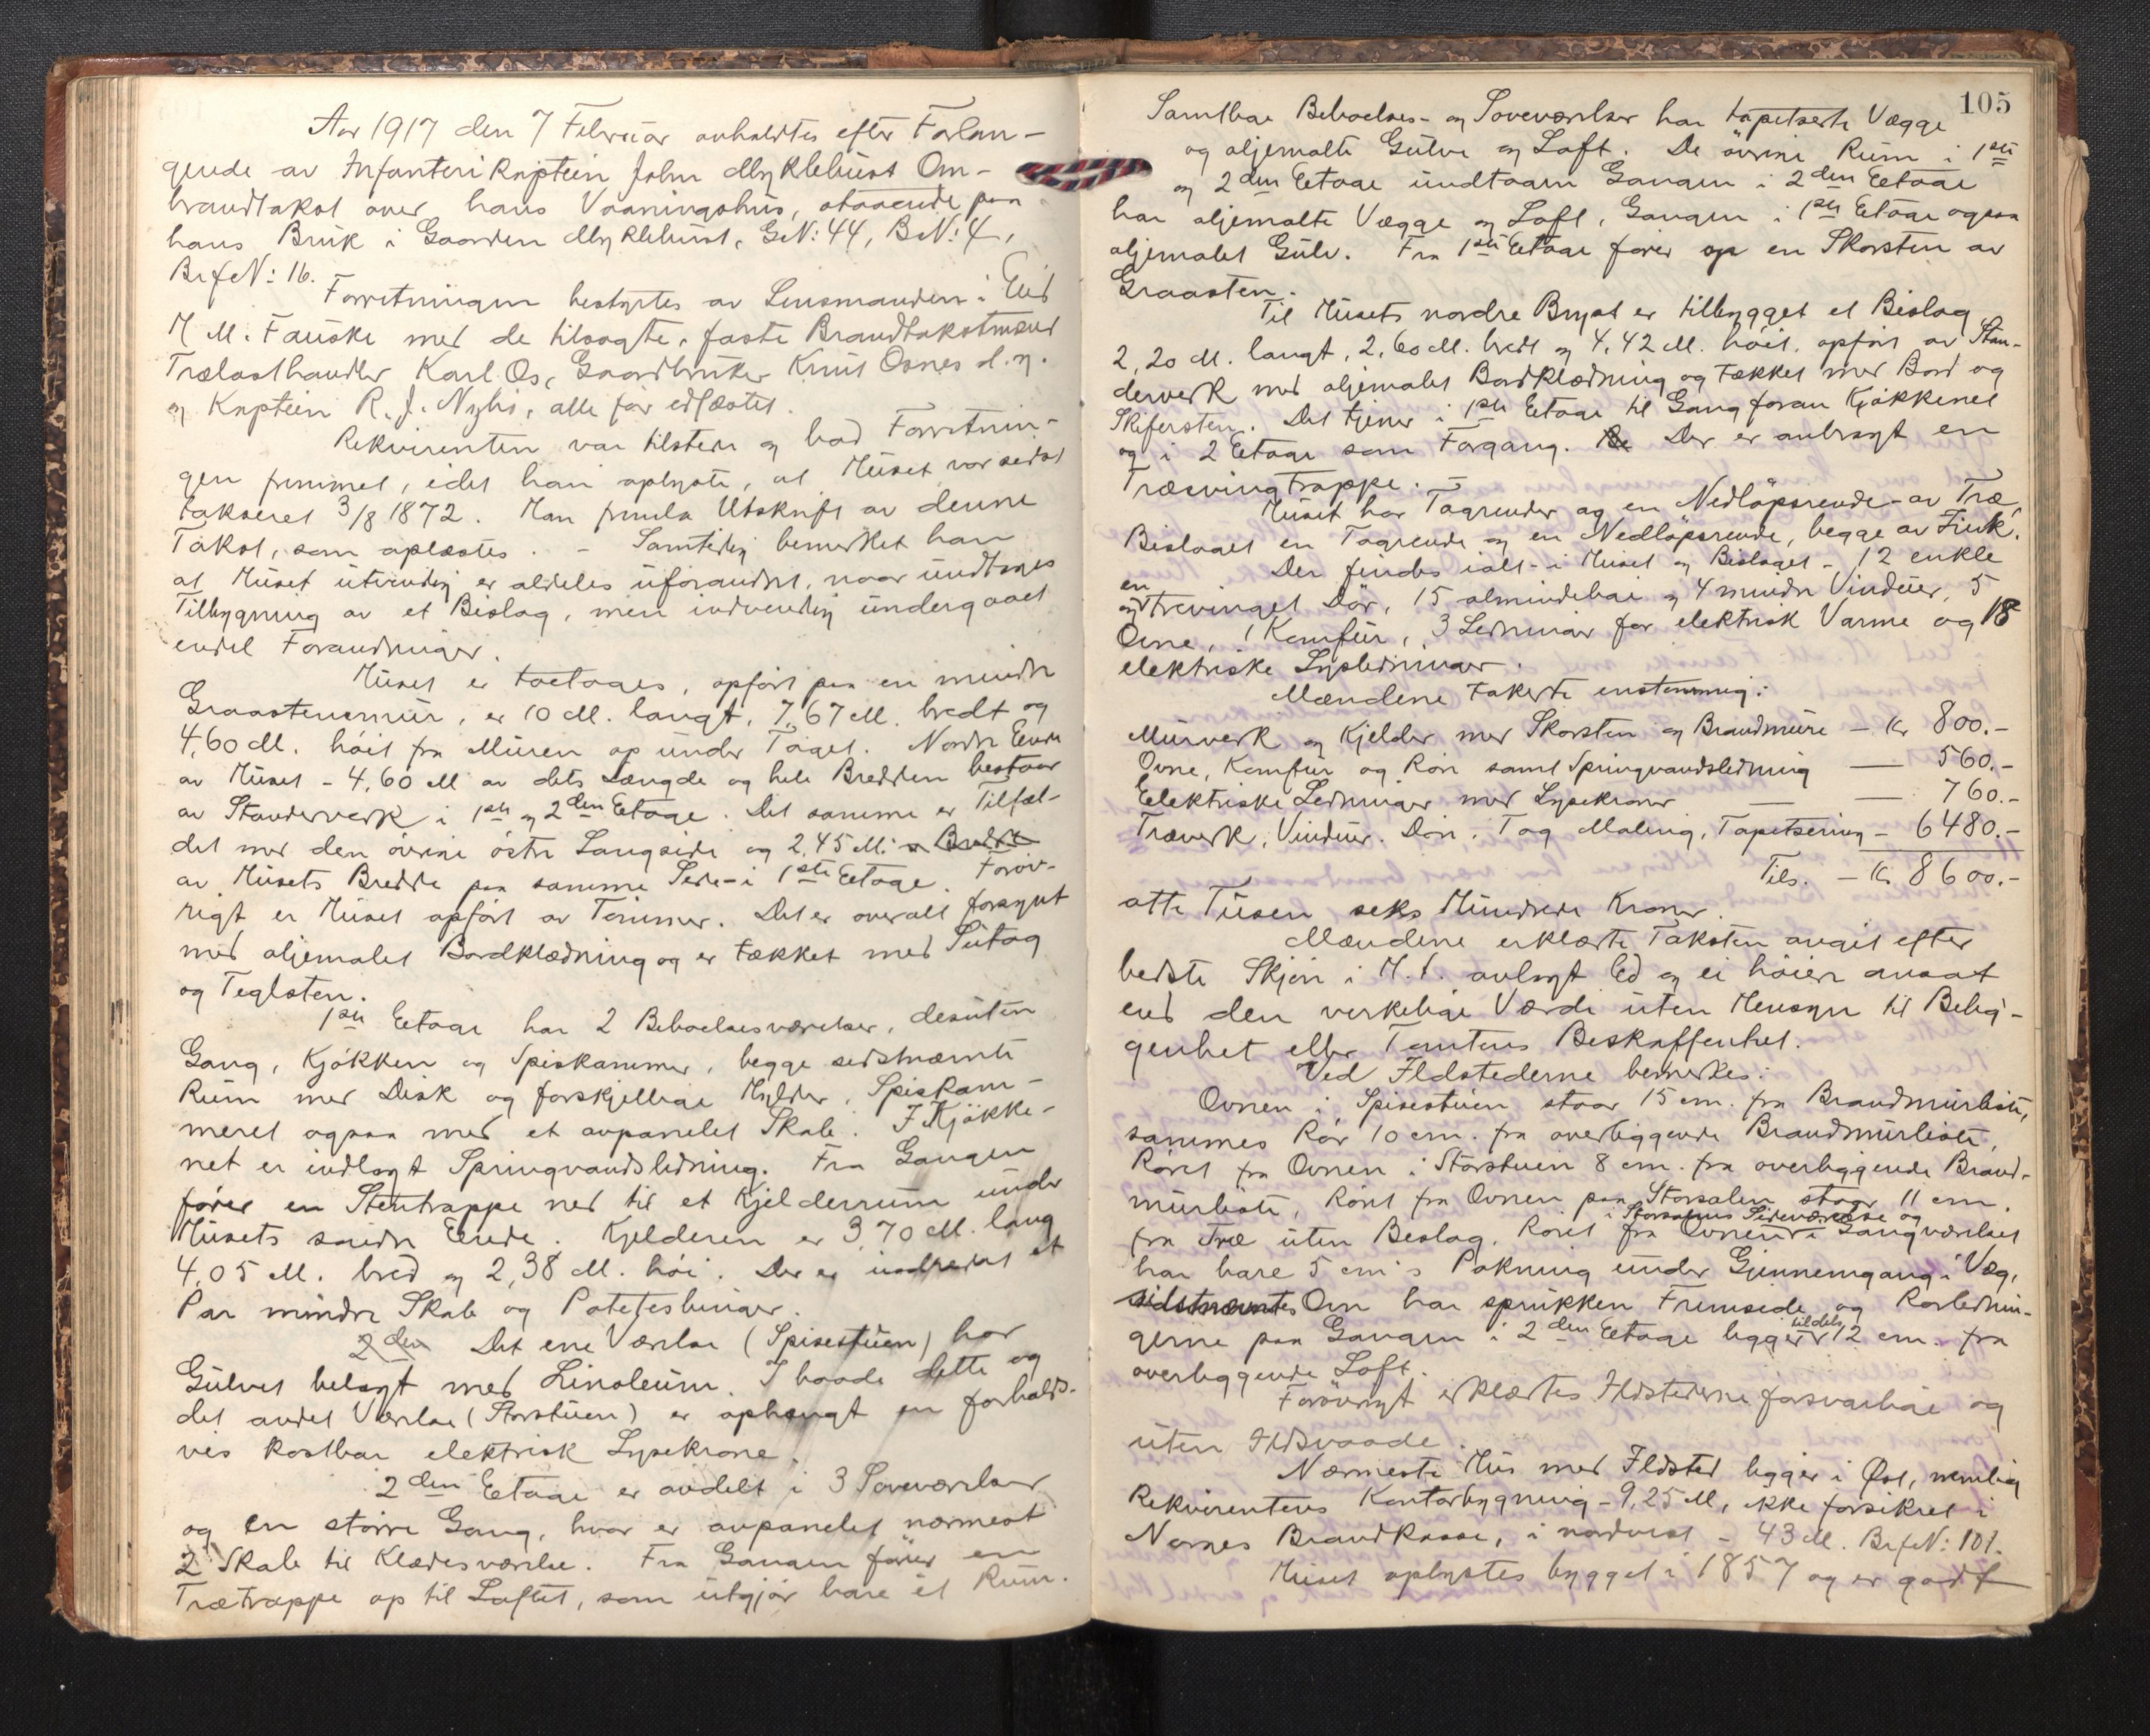 Aar 1917 den 7 Februar avholdtes efter Forlan-
gende av Infanterikaptein John Myklebust Om-
brandtakst over hans Vaaningshus, staaende paa
hans Bruk i Gaarden Myklebust, GN: 44, BN: 4,
BrfN: 16.
Forretningen bestyrtes av Lensmanden i Eid
H M. Fauske med de tilsagte, faste Brandtakstmænd
Trælasthandler Karl Os, Gaardbruker Knut Osnes d. y.
og Kaptein R. J. Nyhs, alle før edfæstet.
Rekvirenten var tilstede og bad Forretnin-
gen fremmet, idet han oplyste, at Huset var sidst
takseret 3/8 1872. Han fremla Utskrift av denne
Takst, som oplæstes. - Samtidig bemerket han
at Huset utvendig er aldeles uforandret, naar undtages
Tilbygning av et Bislag, men indvendig undergaaet
endel Forandringer.
Huset er toetages, opført paa en mindre
Graastensmur, er 10 M. langt, 7,67 M. bredt og
4,60 M. høit fra Muren op under Taget. Nordre Ende
av Huset - 4,60 M av dets Længde og hele Bredden bestaar
av Standerverk i 1ste og 2den Etage. Det samme er Tilfæl-
det med den øvrige østre Langside og 2,45 M. a Bredde
av Husets Bredde paa samme Side - i 1ste Etage. Forøv-
rigt er Huset opført av Tømmer. Det er overalt forsynt
med oljemalet Bordklædning og er tækket med Sutag
og Teglsten.
1ste Etage har 2 Beboelsesværelser, desuten
Gang, Kjøkken og Spiskammer, begge sidstnævnte
Rum med Disk og forskjellige Hylder, Spiskam-
meret ogsaa med et avpanelet Skab. I Kjøkke-
net er indlagt Springvandsledning. Fra Gangen
fører en Stentrappe ned til et Kjelderrum under
Husets søndre Ende. Kjelderen er 3,70 M. lang
4,05 M. bred og 2,38 M. høi. Der er indredet et
Par mindre Skab og Potetesbinger.
2den Det ene Værelse (Spisestuen) har
Gulvet belagt med Linoleum. I baade dette og
det andet Værelse (Storstuen) er ophængt en forholds-
vis kostbar elektrisk Lysekrone.
2den Etage er avdelt i 3 Soveværelser
og en større Gang, hvor er avpanelet nærmest
2 Skab til Klædesværelse. Fra Gangen fører en
Trætrappe op til Loftet, som utgjør bare et Rum.
105
Samtlige Beboelses- og Soveværelser har tapetserte Vægge
og oljemalte Gulve og Loft. De øvrige Rum i 1ste
og 2den Etage undtagen Gangen i 2den Etage
har oljemalte Vægge og Loft, Gangen i 1ste Etage ogsaa
oljemalet Gulv. Fra 1ste Etage fører op en Skorsten av
Graasten.
Til Husets nordre Bryst er tilbygget et Bislag
2,20 M. langt, 2,60 M. bredt og 4,42 M. høit, opført av Stan-
derverk med oljemalet Bordklædning og tækket med Bord og
Skifersten. Det tjener i 1ste Etage til Gang foran Kjøkkenet
og i 2 Etage som Forgang. Der er anbragt en
Træsvingtrappe.
Huset har Tagrender og en Nedløpsrende - av Træ,
Bislaget en Tagrende og en Nedløpsrende, begge av Zink.
Der findes ialt - i Huset og Bislaget - 12 enkle
og en trevinget Dør, 15 almindelige og 4 mindre Vinduer, 5
Ovne, 1 Komfur, 3 Ledninger for elektrisk Varme og 18
elektriske Lysledninger.
Mændene takerte enstemmig:
Murverk og Kjelder med Skorsten og Brandmure - Kr 800.-
Ovne, Komfur og Rør samt Springvandsledning — 560.-
Elektriske Ledninger med Lysekroner — — 760.-
Træverk, Vinduer. Døre. Tag Maling, Tapetsering - 6480.-
Tils. - Kr 8600.-
otte Tusen seks Hundrede Kroner.
Mændene erklærte Taksten avgit efter
bedste Skjøn i H. t. avlagt Ed og ei høiere ansat
end den verkelige Værdi uten Hensyn til Belig-
genhet eller Tomtens Beskaffenhet.
Ved Ildstederne bemerkes:
Ovnen i Spisestuen staar 15 cm. fra Brandmurliste,
sammes Rør 10 cm. fra overliggende Brandmurliste,
Røret fra Ovnen i Storstuen 8 cm. fra overliggende Brand-
murliste, Røret fra Ovnen paa Storsalen staar 11 cm.
fra Træ uten Beslag. Røret fra Ovnen i Storsalens Sideværelse og i Gangværelset
har bare 5 cm's Pakning under Gjennemgang i Væg,
sidstnævntes Ovn har sprukken Fremside og Rørlednin-
gerne paa Gangen i 2den Etage ligger tildels 12 cm. fra
overliggende Loft.
Forøvrigt erklærtes Ildstederne forsvarlige og
uten Ildsvaade.
Nærmeste Hus med Ildsted ligger i Øst, nemlig
Rekvirentens Kontorbygning - 9,25 M, ikke forsikret i
Norges Brandkasse, i nordvest - 43 M. BrfN: 101.
Huset oplystes bygget i 1857 og er godt